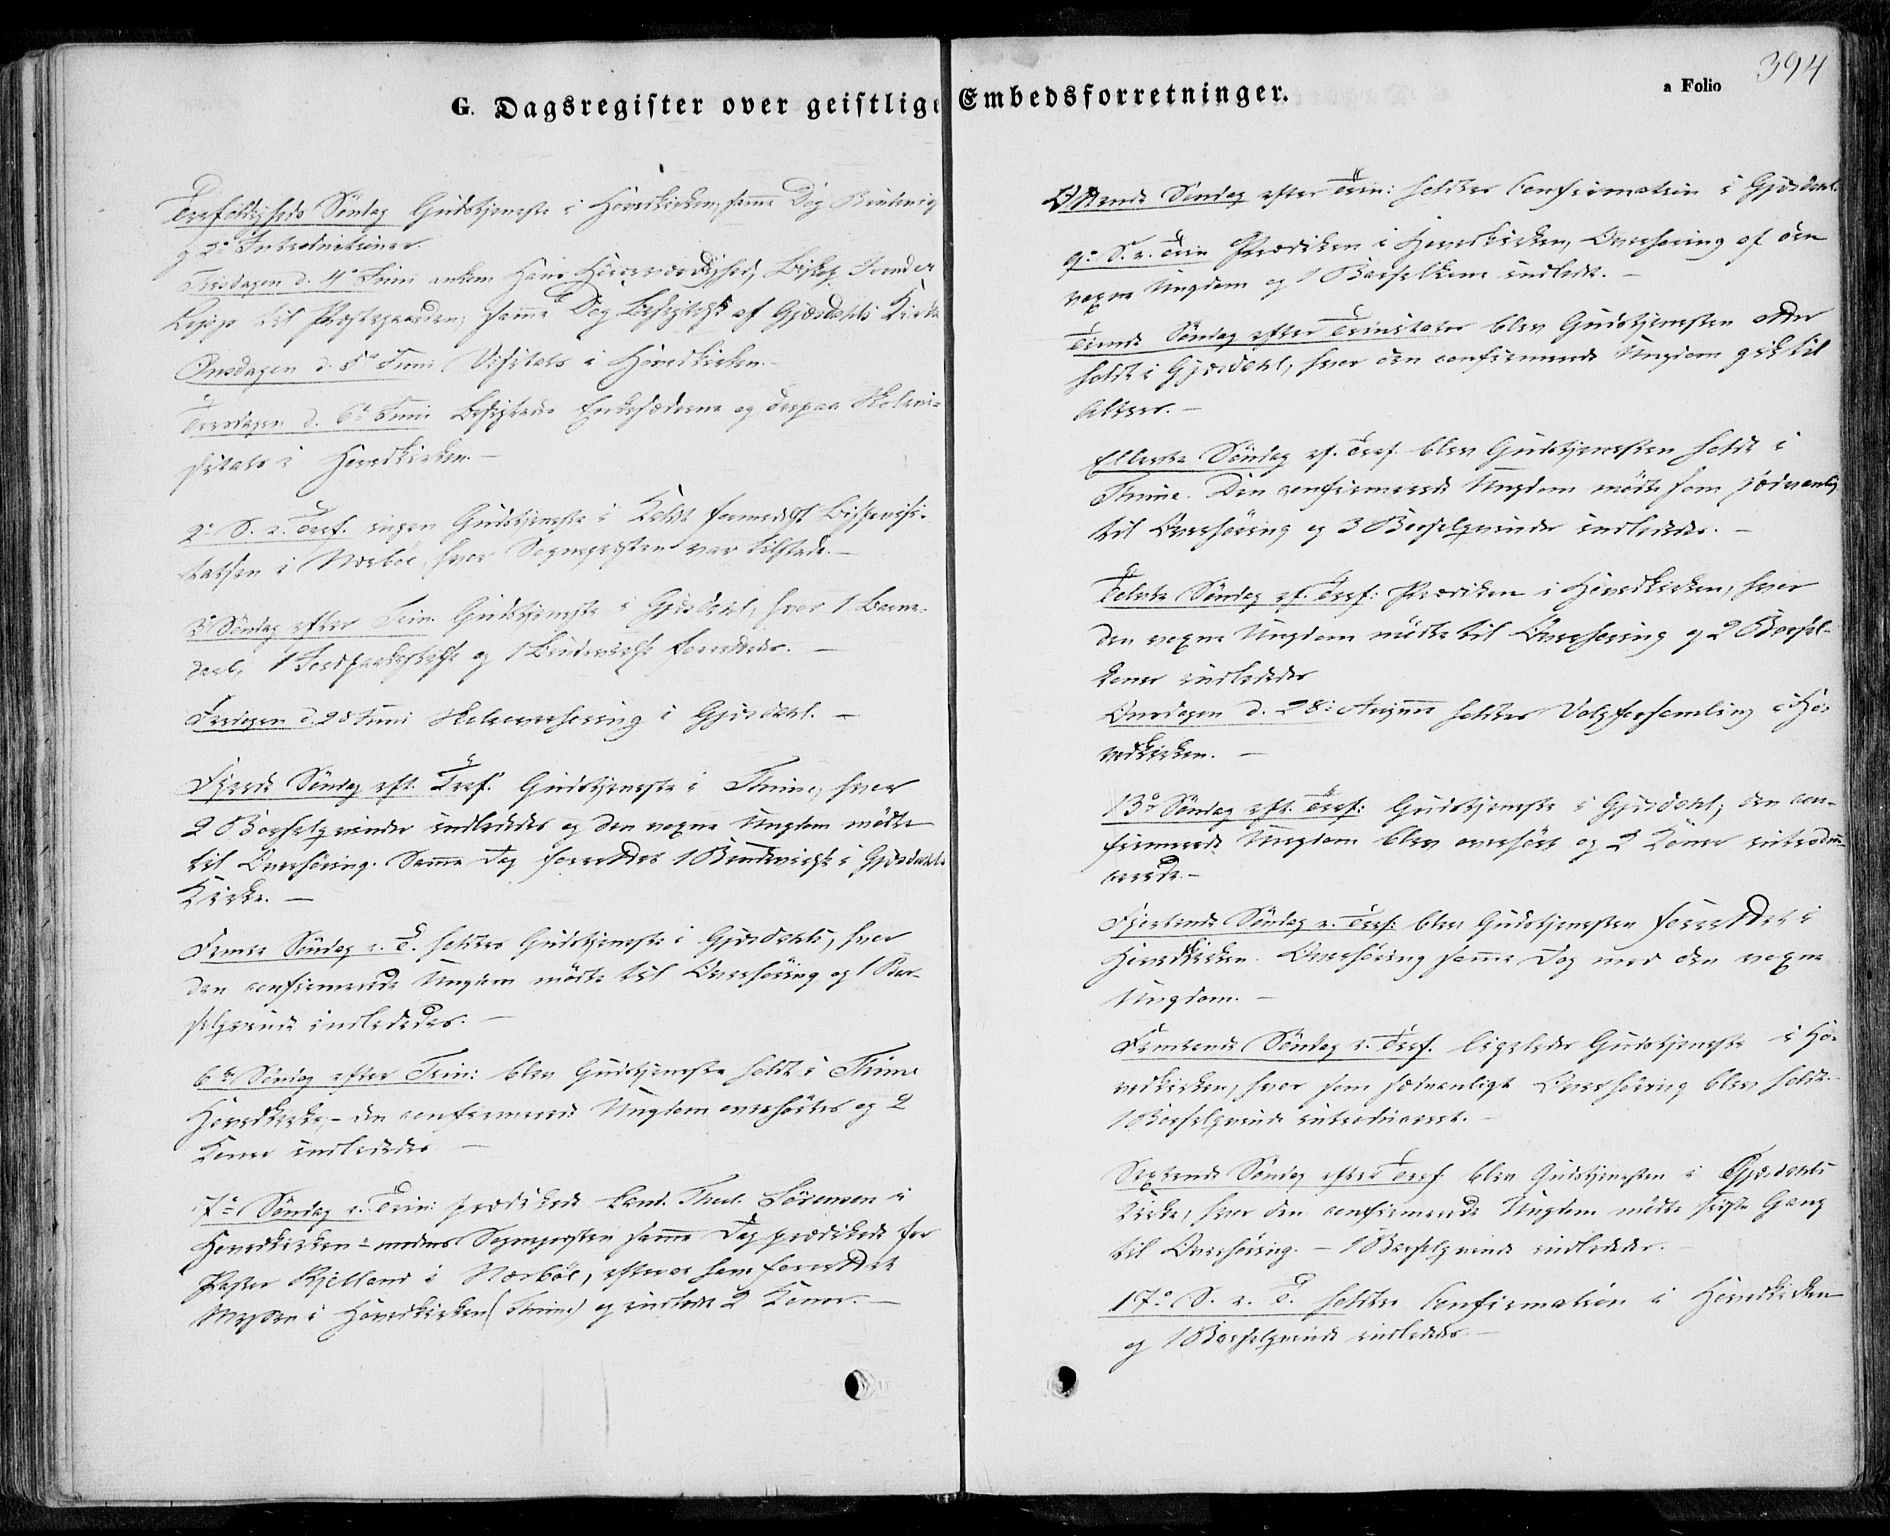 G. Dagsregister over geistlige Embedsforretninger.
a Folio
394
Trefoldigheds Söndag Gudstjeneste i Hovedkirken, samme Dag Brudevig
g 2de Introductioner
Tirsdagen d. 4de Juni ankom Hans Höiærværdighed, Biskop
til Præstegaarden; samme Dag Besigtelse af Gjæsdahls Kirke
Onsdagen d. 5te Juni Visitats i Hovedkirken.
Torsdagen d. 6te Juni besigtedes Enkesæderne og derpaa Skolevi-
sitats i Hovedkirken. —
2. S. e. Tref. ingen Gudstjeneste i Kaldet formedelst Bispevisi-
tatsen i Nærboe, hvor Sognepræsten var tilstede. —
3die Söndag efter Trin. Gudstjeneste i Gjæsdahl, hvor 1 Barne-
daab, 1 Jordpaakastelse og 1 Brudevielse forrettedes. —
Fredagen d. 28 Juni Skoleoverhöring i Gjæsdahl. —
Fjerde Söndag eft. Tref. Gudstjeneste i Thime, hvor
2 Barselqvinder indlededes og den voxne Ungdom mödte
til Overhöring. Samme Dag forrettedes 1 Brudevielse i Gjæsdahls
Kirke. —
Femte Söndag e. T. holdtes Gudstjeneste i Gjæsdahl, hvor
den confirmerede Ungdom mödte til Overhöring og 1 Bar-
selqvinde indlededes. —
6te Söndag efter Trin: blev Gudstjeneste holdt i Thime
Hovedkirke, – den confirmerede Ungdom overhörtes og 2
Koner indlededes —
7de Söndag e. Trin: prædikede Cand. Theol. Sörensen i
Hovedkirken – medens Sognepræsten samme Dag prædikede for
Pastor Kjelland i Nærböe, efterat have forrettet
Messen i Hovedkirken (Thime) og indledt 2 Koner. —
Ottende Söndag efter Trin: holdtes Confirmation i Gjæsdahl.
9de S. e. Trin Prædiken i Hovedkirken, Overhöring af den
voxne Ungdom og 1 Barselkone indledt. —
Tiende Söndag efter Trinitatis blev Gudstjenesten atter
holdt i Gjæsdahl, hvor den confirmerede Ungdom gik til
Alters. —
Ellevte Söndag ef. Tref. blev Gudstjenesten holdt i
Thime. Den confirmerede Ungdom mödte som sædvanlig
til Overhöring og 3 Barselqvinder indlededes. —
Tolvte Söndag ef. Tref: Prædiken i Hovedkirken, hvor
den voxne Ungdom mödte til Overhöring og 2 Barsel-
koner indlededes
Onsdagen d. 28de August holdtes Valgforsamling i Ho-
vedkirken. —
13de Söndag eft. Tref: Gudstjeneste i Gjæsdahl; den con-
firmerede Ungdom blev overhört og 2 Koner introdu-
cerede. —
Fjortende Söndag e. Tref: blev Gudstjenesten forrettet i
Hovedkirken. Overhöring samme Dag med den voxne
Ungdom. —
Femtende Söndag e. Tref. ligeledes Gudstjeneste i Ho-
vedkirken, hvor som sædvanligt Overhöring blev holdt.
1 Barselqvinde introduceret. —
Sextende Söndag efter Tref blev Gudstjenesten i Gjæsdahls
Kirke, hvor den confirmerede Ungdom mödte sidste Gang
til Overhöring. – 1 Barselqvinde indlededes. —
17de S. e. T. holdtes Confirmation i Hovedkirken
og 1 Barselqvinde indlededes. —